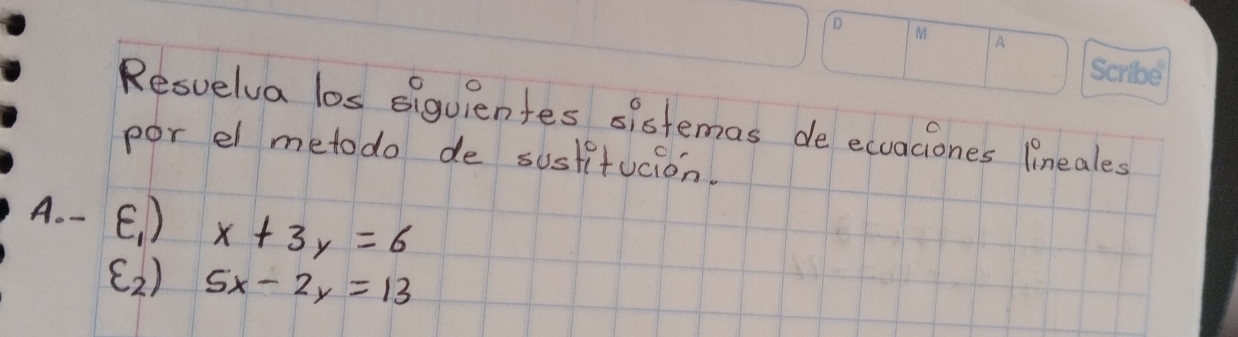 D M A
Scribe
Resuelva los siguientes sistemas de ecuaciones lineales
por el metodo de sustitución.
A.- E1) x + 3y = 6
E2) 5x - 2y = 13